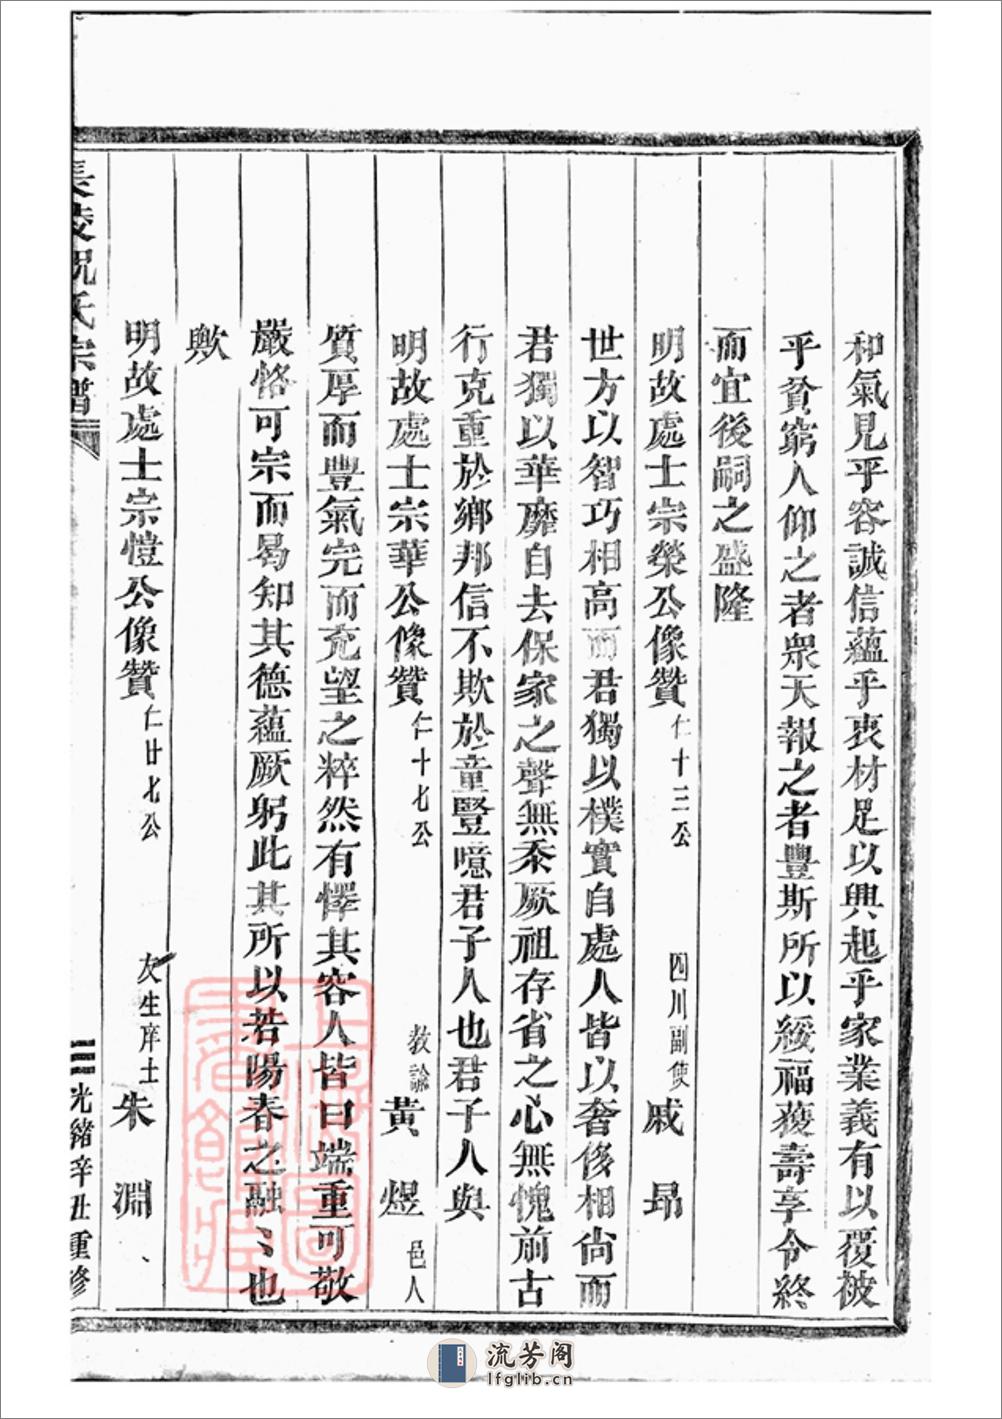 和氣見乎容誠信蘊乎衷材足以興起乎家業義有以覆被
乎貧窮人仰之者眾天報之者豐斯所以綏福蓌壽享令終
而宜後嗣之盛隆
明故處士宗榮公像贊 仁十三公 四川副使 戚 昂
世方以智巧相高而君獨以樸實自處人皆以奢侈相尙而
君獨以華靡自去保家之聲無忝厥祖存省之心無愧前古
行克重於鄉邦信不欺於童豎噫君子人也君子人與
明故處士宗華公像贊 仁十七公 教諭 黃 煜 邑人
質厚而豐氣完而充望之粹然有懌其容人皆曰端重可敬
嚴恪可宗而曷知其德蘊厥躬此其所以若陽春之融〻也
歟
明故處士宗愷公像贊 仁廿七公 友生庠士 朱 淵
長陵祝氏宗譜
光緒辛丑重修
流芳阁
lfglib.cn